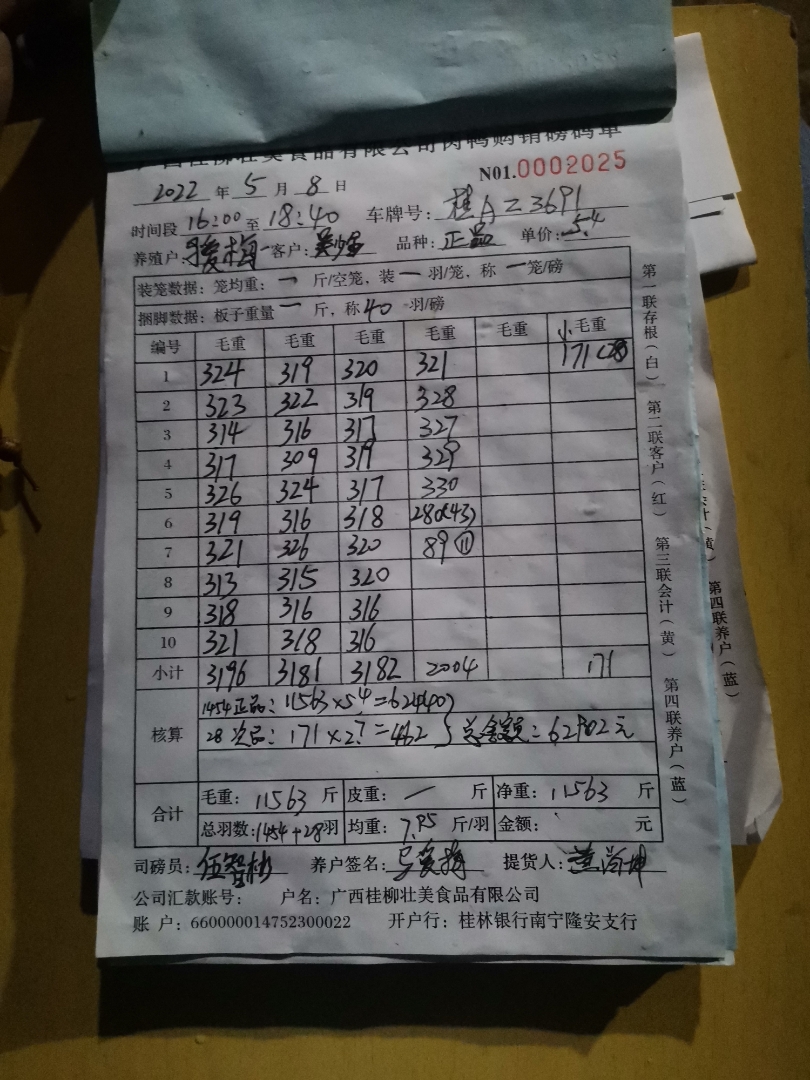 广西桂柳壮美食品有限公司肉鸭购销磅码单
N01.0002025
2022 年 5 月 8 日
时间段 16:00 至 18:40 车牌号: 桂A Z3691
养殖户: 客户: 品种: 正品 单价: 5.4
装笼数据: 笼均重: 一 斤/空笼, 装 一 羽/笼, 称 一 笼/磅
捆脚数据: 板子重量 一 斤, 称 40 羽/磅
编号 毛重 毛重 毛重 毛重 毛重 小毛重
1 324 319 320 321 171(28)
2 323 322 319 328
3 314 316 317 327
4 317 309 319 329
5 326 324 317 330
6 319 316 318 280(43)
7 321 326 320 89⑪
8 313 315 320
9 318 316 316
10 321 318 316
小计 3196 3181 3182 2004 171
核算
1454正品: 11563×5.4=62440
28 次品: 171×2.7=462 总金额: 62902元
合计
毛重: 11563 斤 皮重: 一 斤 净重: 11563 斤
总羽数: 1454+28 羽 均重: 7.95 斤/羽 金额: 元
司磅员: 伍智彬 养户签名: 提货人:
公司汇款账号: 户名: 广西桂柳壮美食品有限公司
账 户: 660000014752300022 开户行: 桂林银行南宁隆安支行
第一联存根(白) 第二联客户(红) 第三联会计(黄) 第四联养户(蓝)
第四联养户(蓝)